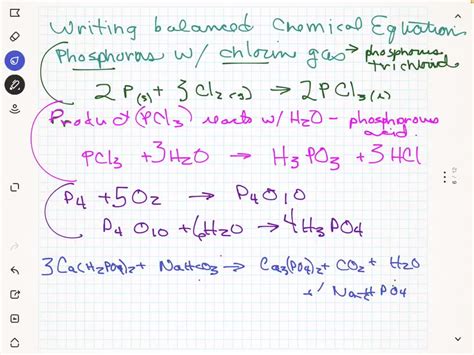 Writing balanced Chemical Equation
Phosphorus w/ chlorin gas → phosphorus trichlorid
2P(s) + 3Cl2(g) → 2PCl3(l)
Product (PCl3) reacts w/ H2O - phosphorous acid.
PCl3 + 3H2O → H3PO3 + 3HCl
P4 + 5O2 → P4O10
P4O10 + 6H2O → 4H3PO4
3Ca(H2PO4)2 + NaHCO3 → Ca3(PO4)2 + CO2 + H2O
+ Na2HPO4